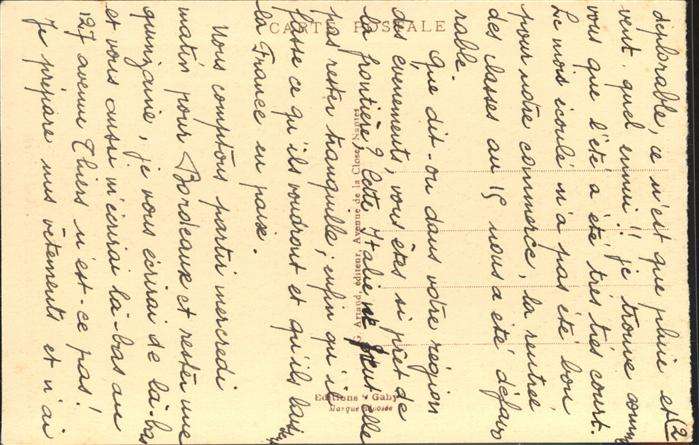 2
déplorable, ce n'est que pluie et
vent. quel ennui!! je trouve comm
vous que l'été a été très très court.
Le mois écoulé n'a pas été bon
pour notre commerce, la rentrée
des classes au 15 nous a été défavo
rable.
Que dit-on dans votre région
des évènements, vous êtes si près de
la frontière? Cette Italie ne peut elle
pas rester tranquille, enfin qu'i
fasse ce qu'ils voudront et qu'ils lais
la France en paix.
Nous comptons partir mercredi
matin pour Bordeaux et rester une
quinzaine, je vous écrirai de là-bas
et vous aussi m'écrirai là-bas au
127 avenue Thiers n'est-ce pas!
Je prépare nos vêtements et n'ai
CARTE POSTALE
G. Artaud, éditeur, Avenue de la Close, Nantes
Editions "Gaby"
Marque déposée